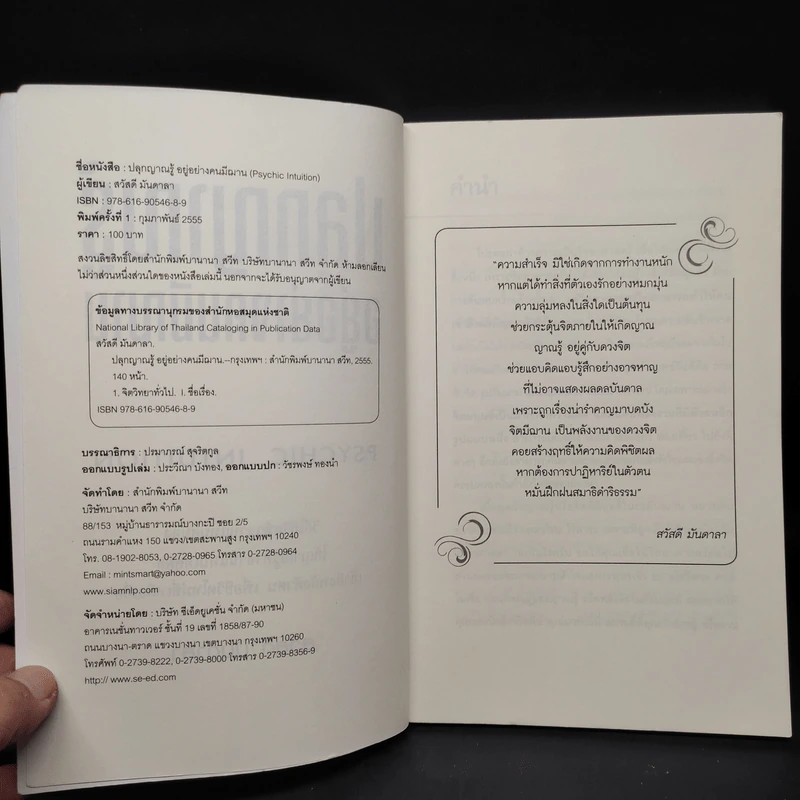 ชื่อหนังสือ : ปลุกญาณรู้ อยู่อย่างคนมีฌาน (Psychic Intuition)
ผู้เขียน : สวัสดี มันดาลา
ISBN : 978-616-90546-8-9
พิมพ์ครั้งที่ 1 : กุมภาพันธ์ 2555
ราคา : 100 บาท
สงวนลิขสิทธิ์โดยสำนักพิมพ์บานานา สวีท บริษัทบานานา สวีท จำกัด ห้ามลอกเลียน
ไม่ว่าส่วนหนึ่งส่วนใดของหนังสือเล่มนี้ นอกจากจะได้รับอนุญาตจากผู้เขียน
ข้อมูลทางบรรณานุกรมของสำนักหอสมุดแห่งชาติ
National Library of Thailand Cataloging in Publication Data
สวัสดี มันดาลา.
ปลุกญาณรู้ อยู่อย่างคนมีฌาน.--กรุงเทพฯ : สำนักพิมพ์บานานา สวีท, 2555.
140 หน้า.
1. จิตวิทยาทั่วไป. I. ชื่อเรื่อง.
ISBN 978-616-90546-8-9
บรรณาธิการ : ปรมาภรณ์ สุจริตกูล
ออกแบบรูปเล่ม : ประวีณา บังทอง, ออกแบบปก : วัชรพงษ์ ทองนำ
จัดทำโดย : สำนักพิมพ์บานานา สวีท
บริษัทบานานา สวีท จำกัด
88/153 หมู่บ้านธารารมณ์บางกะปิ ซอย 2/5
ถนนรามคำแหง 150 แขวง/เขตสะพานสูง กรุงเทพฯ 10240
โทร. 08-1902-8053, 0-2728-0965 โทรสาร 0-2728-0964
Email : mintsmart@yahoo.com
www.siamnlp.com
จัดจำหน่ายโดย : บริษัท ซีเอ็ดยูเคชั่น จำกัด (มหาชน)
อาคารเนชั่นทาวเวอร์ ชั้นที่ 19 เลขที่ 1858/87-90
ถนนบางนา-ตราด แขวงบางนา เขตบางนา กรุงเทพฯ 10260
โทรศัพท์ 0-2739-8222, 0-2739-8000 โทรสาร 0-2739-8356-9
http:// www.se-ed.com
"ความสำเร็จ มิใช่เกิดจากการทำงานหนัก
หากแต่ได้ทำสิ่งที่ตัวเองรักอย่างหมกมุ่น
ความลุ่มหลงในสิ่งใดเป็นต้นทุน
ช่วยกระตุ้นจิตภายในให้เกิดญาณ
ญาณรู้ อยู่คู่กับดวงจิต
ช่วยแอบคิดแอบรู้สึกอย่างอาจหาญ
ที่ไม่อาจแสดงผลดลบันดาล
เพราะถูกเรื่องน่ารำคาญมาบดบัง
จิตมีฌาน เป็นพลังงานของดวงจิต
คอยสร้างฤทธิ์ให้ความคิดพิชิตผล
หากต้องการปาฏิหาริย์ในตัวตน
หมั่นฝึกฝนสมาธิดำริธรรม"
สวัสดี มันดาลา